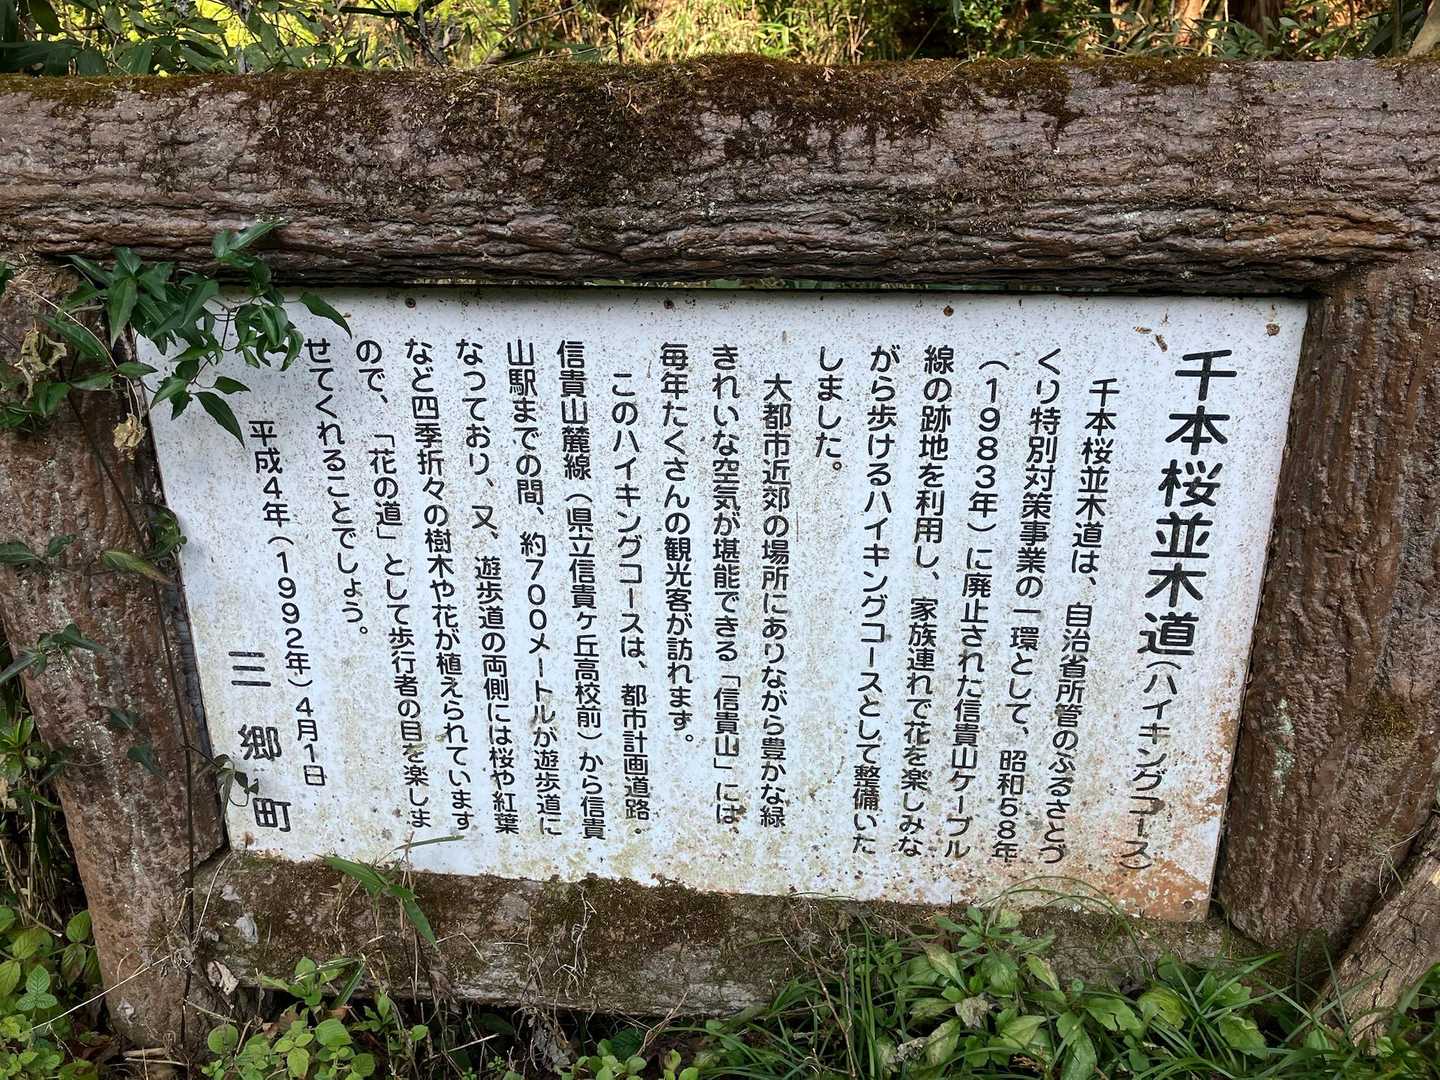 千本桜並木道(ハイキングコース)
千本桜並木道は、自治省所管のふるさとづ
くり特別対策事業の一環として、昭和58年
(1983年)に廃止された信貴山ケーブル
線の跡地を利用し、家族連れで花を楽しみな
がら歩けるハイキングコースとして整備いた
しました。
大都市近郊の場所にありながら豊かな緑
きれいな空気が堪能できる「信貴山」には、
毎年たくさんの観光客が訪れます。
このハイキングコースは、都市計画道路・
信貴山麓線(県立信貴ヶ丘高校前)から信貴
山駅までの間、約700メートルが遊歩道に
なっており、又、遊歩道の両側には桜や紅葉
など四季折々の樹木や花が植えられています
ので、「花の道」として歩行者の目を楽しま
せてくれることでしょう。
平成4年(1992年)4月1日
三郷町